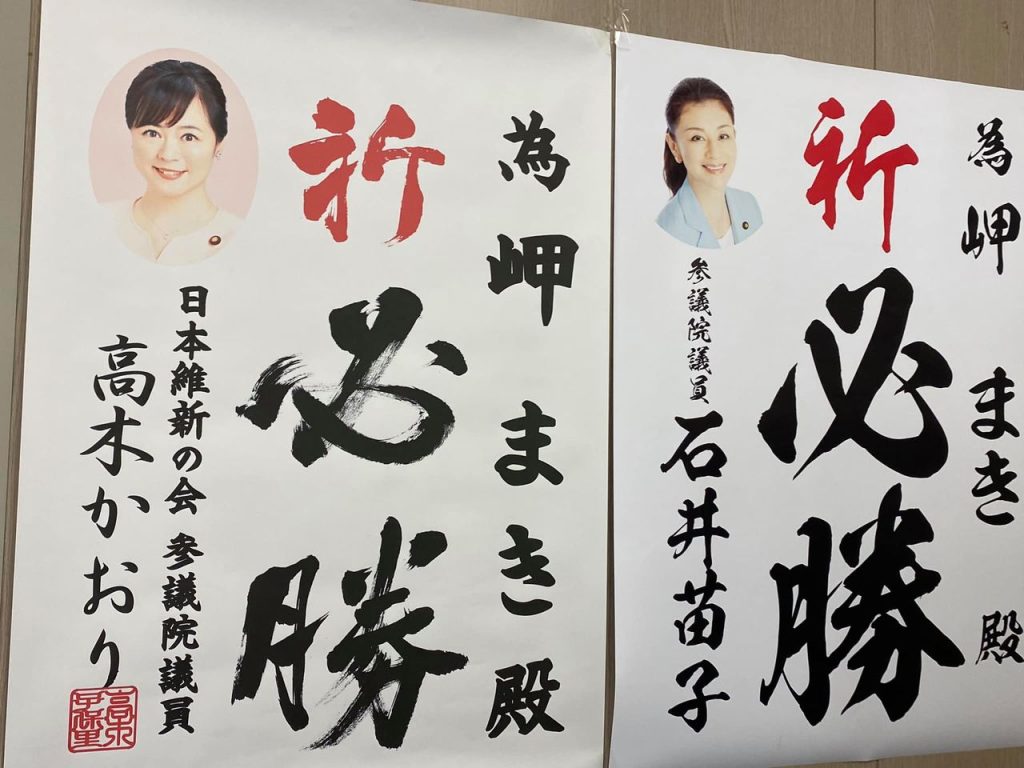 為岬まき殿
祈必勝
日本維新の会 参議院議員
高木かおり
為岬まき殿
祈必勝
参議院議員 石井苗子